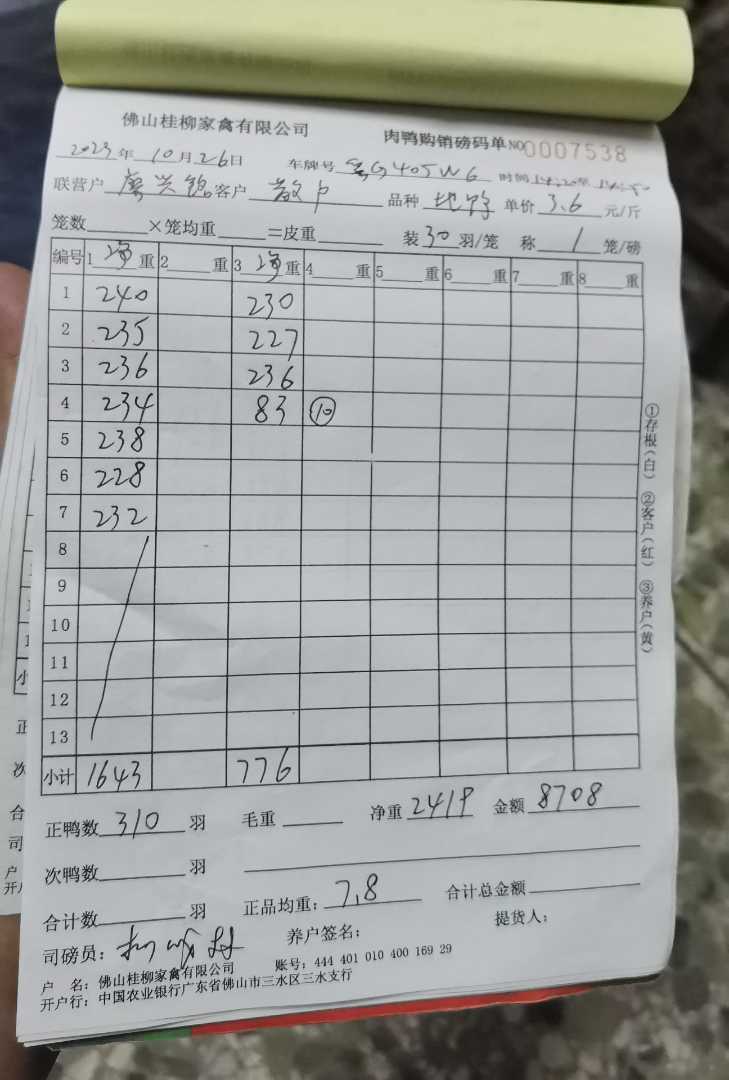 佛山桂柳家禽有限公司 肉鸭购销磅码单 NO 0007538
2023年10月26日 车牌号 粤G405W6 时间
联营户 客户 散户 品种 单价 3.6 元/斤
笼数 ×笼均重 =皮重 装30羽/笼 称 1 笼/磅
编号 1 净重 2 重 3 净重 4 重 5 重 6 重 7 重 8 重
1 240 230
2 235 227
3 236 236
4 234 83 ⑩
5 238
6 228
7 232
8
9
10
11
12
13
小计 1643 776
正鸭数 310 羽 毛重 净重 2419 金额 8708
次鸭数 羽
合计数 羽 正品均重: 7.8 合计总金额
司磅员: 养户签名: 提货人:
户 名: 佛山桂柳家禽有限公司 账号: 444 401 010 400 169 29
开户行: 中国农业银行广东省佛山市三水区三水支行
①存根(白) ②客户(红) ③养户(黄)